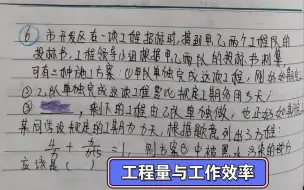 ⑥ 市开发区在一项工程招标时,接到甲乙两个工程队的
投标书,工程领导小组根据甲乙两队的投标书测算,
可有三种施工方案:(1)甲队单独完成这项工程,刚好如期完
② 乙队单独完成这项工程要比规定工期多用5天;
③ 剩下的工程由乙队单独做,也正好如期
某同学设规定的工期为x天,根据题意列出了方程:
4/x + x/(x+5) = 1,则方案③中被墨水污染的部分
应该是( )
工程量与工作效率